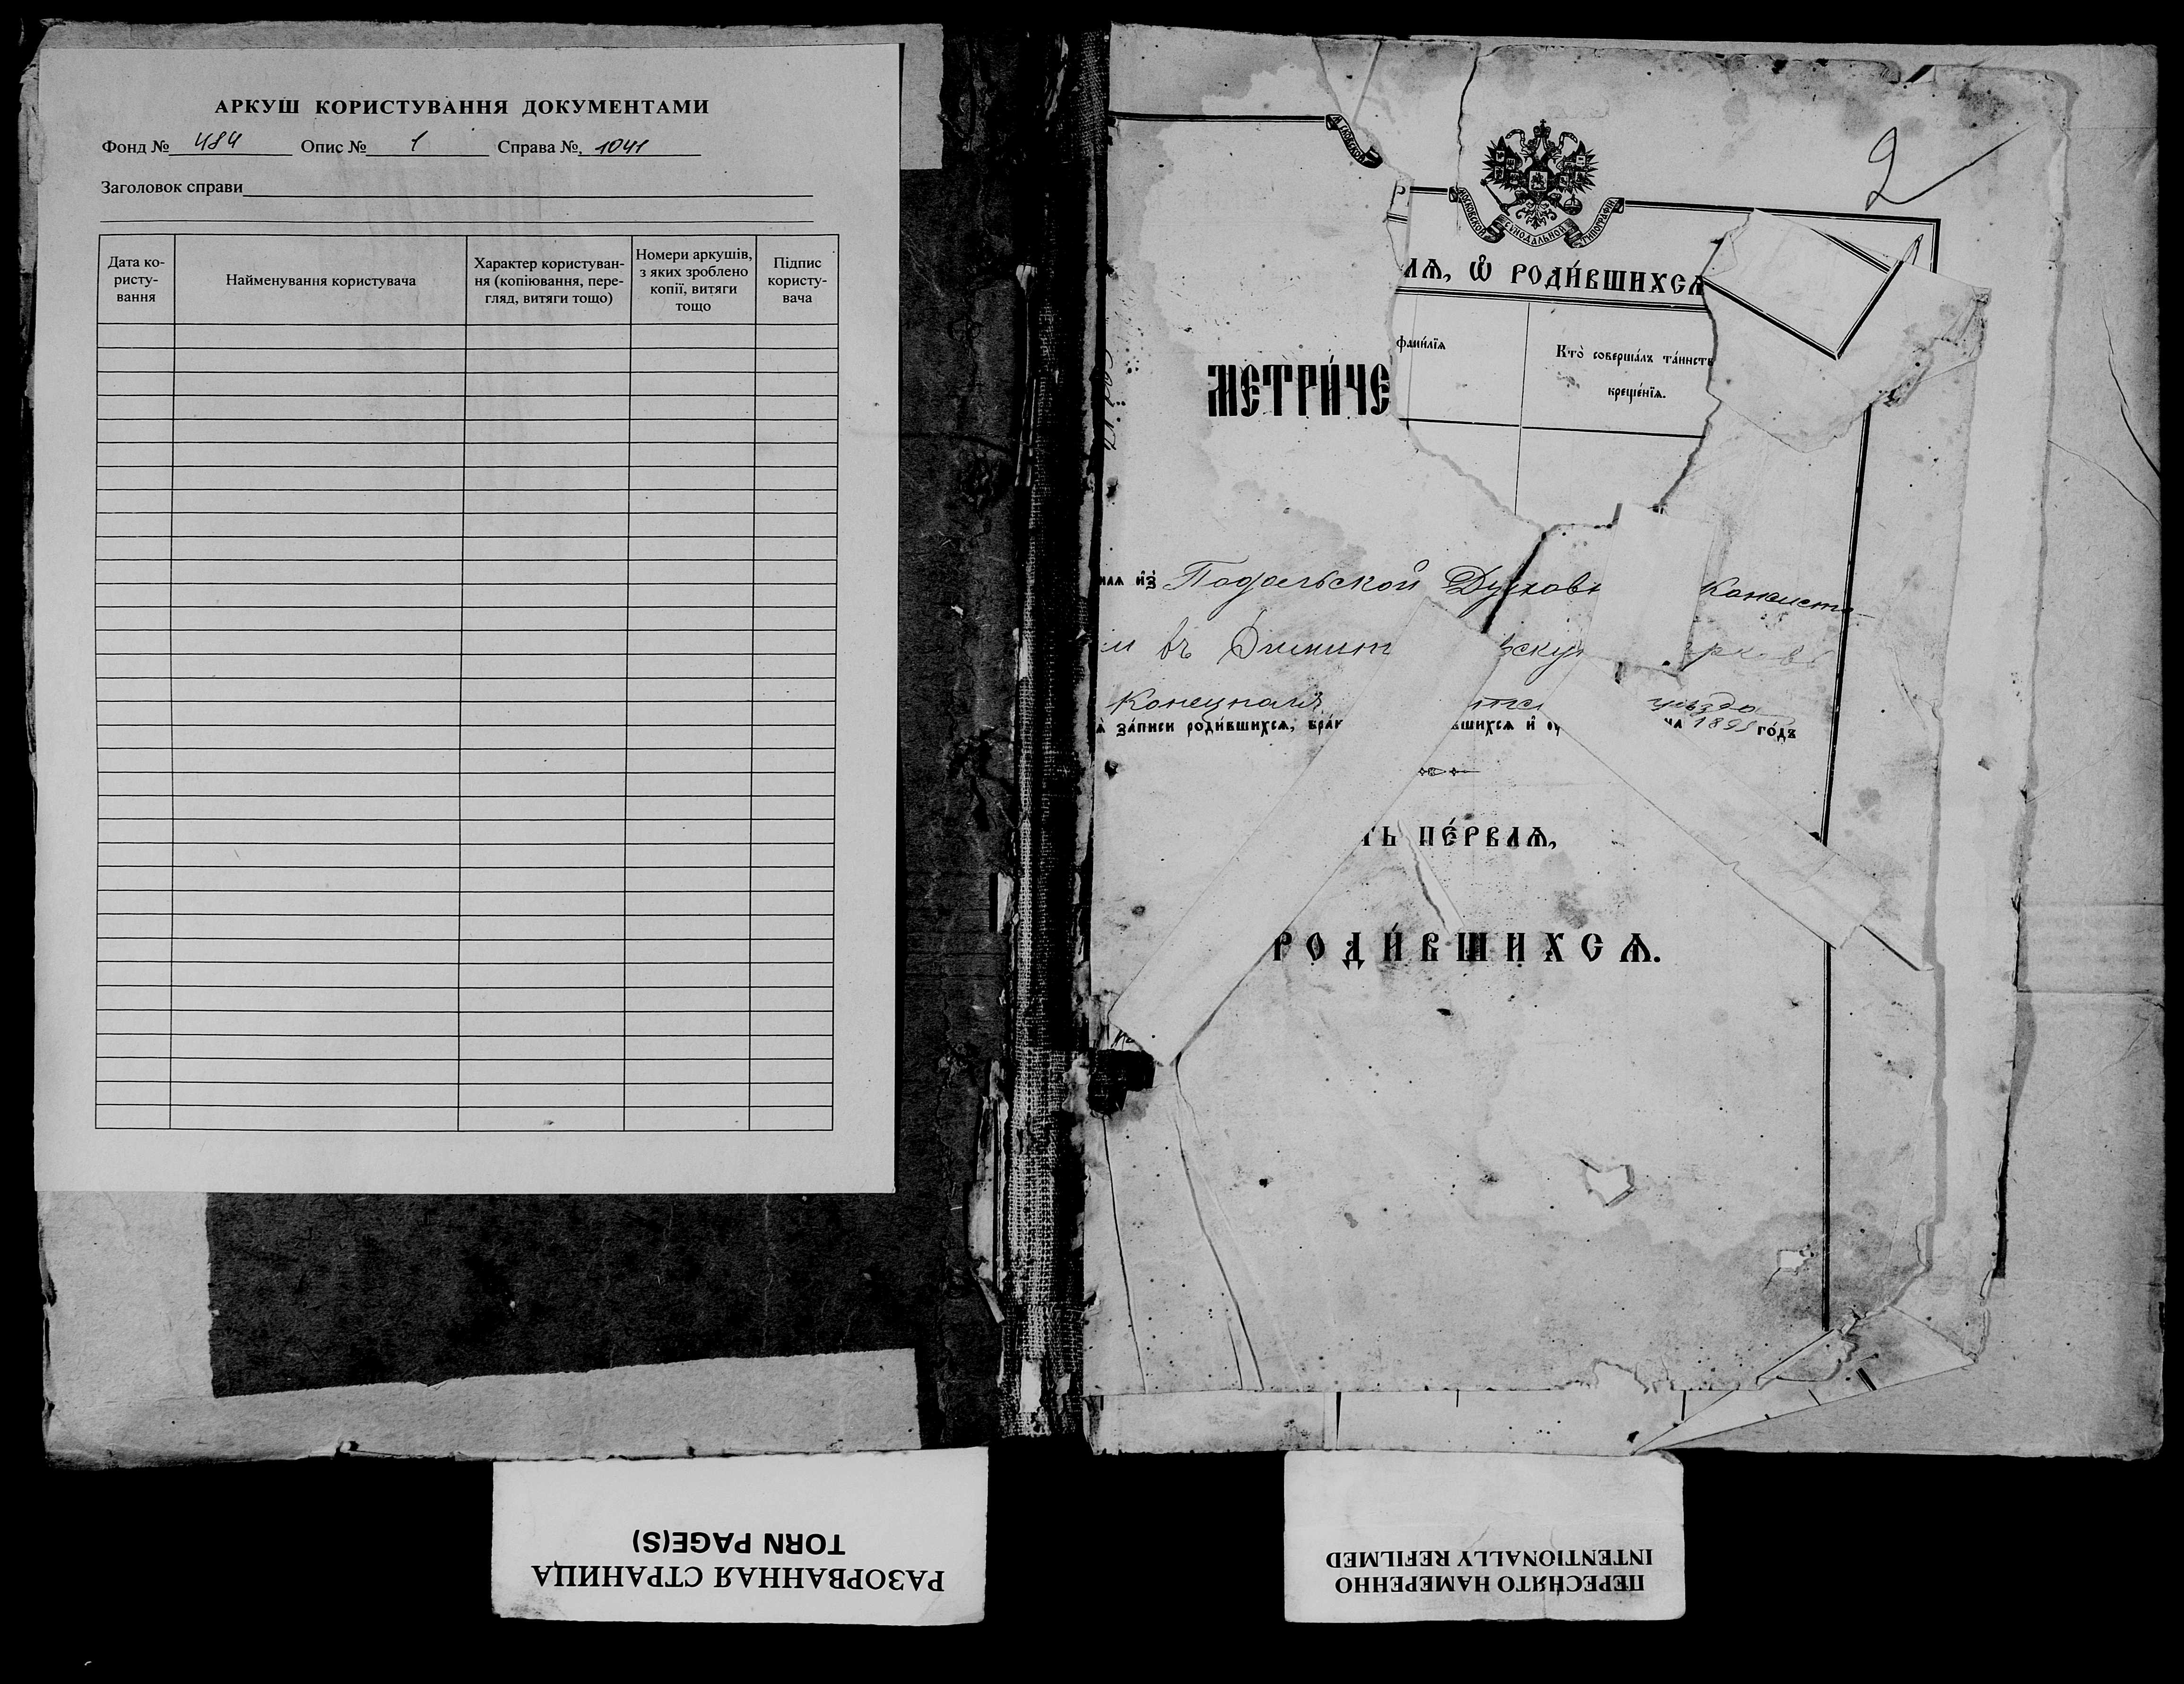 АРКУШ КОРИСТУВАННЯ ДОКУМЕНТАМИ
Фонд № 484 Опис № 1 Справа № 1041
Заголовок справи
Дата ко-
ристу-
вання
Найменування користувача
Характер користуван-
ня (копіювання, пере-
гляд, витяги тощо)
Номери аркушів,
з яких зроблено
копії, витяги
тощо
Підпис
користу-
вача
2
МОСКОВСКОЙ СУНОДАЛЬНОЙ ТИПОГРАФІИ
ѿ РОДИ́ВШИХСѦ
фами́лїѧ
Кто̀ соверша́лъ та́инств
креще́нїѧ.
МЕТРИ́ЧЕ
из̾ Подольской Духовн Консист
въ Димит вску рковь
Конецполь уѣзда
за́писи роди́вшихсѧ, бра́к вшихсѧ и҆ на го́дъ
ТЬ ПЕ́РВАѦ,
РОДИ́ВШИХСѦ.
РАЗОРВАННАЯ СТРАНИЦА
TORN PAGE(S)
ПЕРЕСНЯТО НАМЕРЕННО
INTENTIONALLY REFILMED